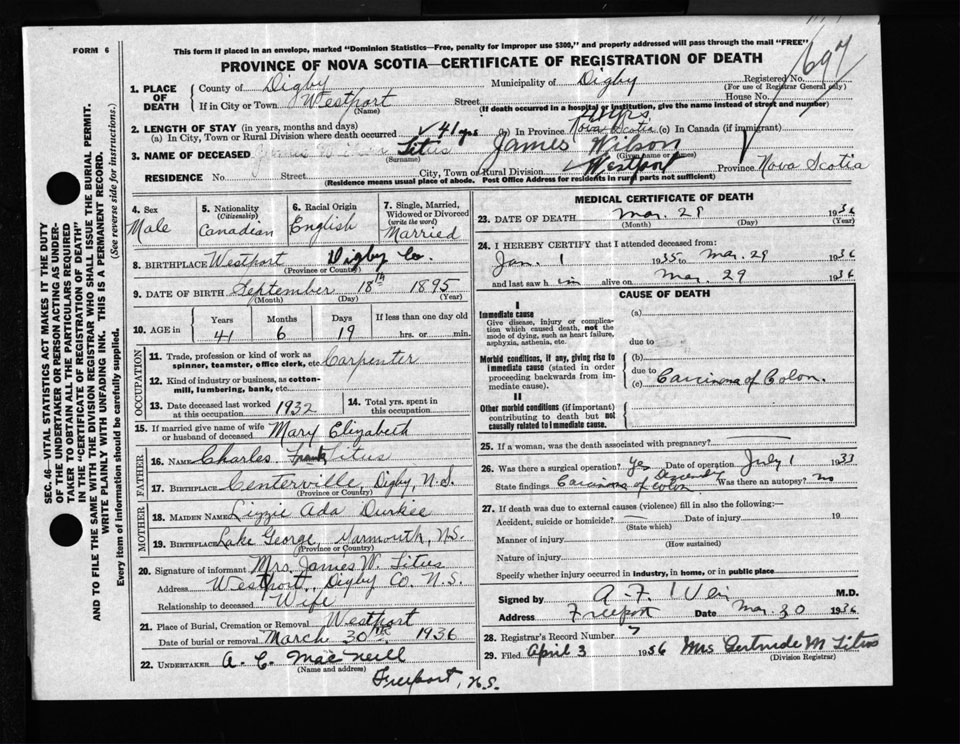 FORM 6
This form if placed in an envelope, marked "Dominion Statistics—Free, penalty for improper use $300," and properly addressed will pass through the mail "FREE"
PROVINCE OF NOVA SCOTIA—CERTIFICATE OF REGISTRATION OF DEATH
697
1. PLACE OF DEATH
County of Digby Municipality of Digby Registered No.
(For use of Registrar General only)
If in City or Town Westport Street House No.
(Name) (If death occurred in a hospital or institution, give the name instead of street and number)
2. LENGTH OF STAY (in years, months and days)
(a) In City, Town or Rural Division where death occurred 41 yrs (b) In Province Nova Scotia (c) In Canada (if immigrant)
3. NAME OF DECEASED Titus James Wilson
(Surname) (Given name or names)
RESIDENCE No. Street City, Town or Rural Division Westport Province Nova Scotia
(Residence means usual place of abode. Post Office Address for residents in rural parts not sufficient)
SEC. 46—VITAL STATISTICS ACT MAKES IT THE DUTY
OF THE UNDERTAKER OR PERSON ACTING AS UNDER-
TAKER TO OBTAIN ALL THE PARTICULARS REQUIRED
IN THE "CERTIFICATE OF REGISTRATION OF DEATH"
AND TO FILE THE SAME WITH THE DIVISION REGISTRAR WHO SHALL ISSUE THE BURIAL PERMIT.
WRITE PLAINLY WITH UNFADING INK. THIS IS A PERMANENT RECORD.
Every item of information should be carefully supplied. (See reverse side for instructions.)
4. Sex
Male
5. Nationality
(Citizenship)
Canadian
6. Racial Origin
English
7. Single, Married, Widowed or Divorced
(write the word)
Married
8. BIRTHPLACE Westport Digby Co.
(Province or Country)
9. DATE OF BIRTH September 18th 1895
(Month) (Day) (Year)
10. AGE in Years Months Days If less than one day old
41 6 19 hrs. or min.
OCCUPATION
11. Trade, profession or kind of work as
spinner, teamster, office clerk, etc. Carpenter
12. Kind of industry or business, as cotton-
mill, lumbering, bank, etc.
13. Date deceased last worked
at this occupation 1932
14. Total yrs. spent in
this occupation
15. If married give name of wife
or husband of deceased Mary Elizabeth
FATHER
16. NAME Charles Frank Titus
17. BIRTHPLACE Centerville, Digby, N.S.
(Province or Country)
MOTHER
18. MAIDEN NAME Lizzie Ada Durkee
19. BIRTHPLACE Lake George, Yarmouth, N.S.
(Province or Country)
20. Signature of informant Mrs. James W. Titus
Address Westport, Digby Co. N.S.
Relationship to deceased Wife
21. Place of Burial, Cremation or Removal Westport
Date of burial or removal March 30th 1936
22. UNDERTAKER A. C. MacNeill
(Name and address)
Freeport, N.S.
MEDICAL CERTIFICATE OF DEATH
23. DATE OF DEATH Mar. 29 1936
(Month) (Day) (Year)
24. I HEREBY CERTIFY that I attended deceased from:
Jan. 1 1935 to Mar. 29 1936
and last saw h im alive on Mar. 29 1936
CAUSE OF DEATH
I
Immediate cause
Give disease, injury or complica-
tion which caused death, not the
mode of dying, such as heart failure,
asphyxia, asthenia, etc.
(a)
due to
Morbid conditions, if any, giving rise to
immediate cause (stated in order
proceeding backwards from im-
mediate cause).
(b)
due to
(c) Carcinoma of Colon.
II
Other morbid conditions (if important)
contributing to death but not
causally related to immediate cause.
25. If a woman, was the death associated with pregnancy?
26. Was there a surgical operation? Yes Date of operation July 1 1933
State findings Carcinoma of Descending Colon Was there an autopsy? no
27. If death was due to external causes (violence) fill in also the following:—
Accident, suicide or homicide? Date of injury 19
(State which)
Manner of injury
(How sustained)
Nature of injury
Specify whether injury occurred in industry, in home, or in public place
Signed by A. F. Weir M.D.
Address Freeport Date Mar. 30 1936
28. Registrar's Record Number 7
29. Filed April 3 1936 Mrs Gertrude M Titus
(Division Registrar)